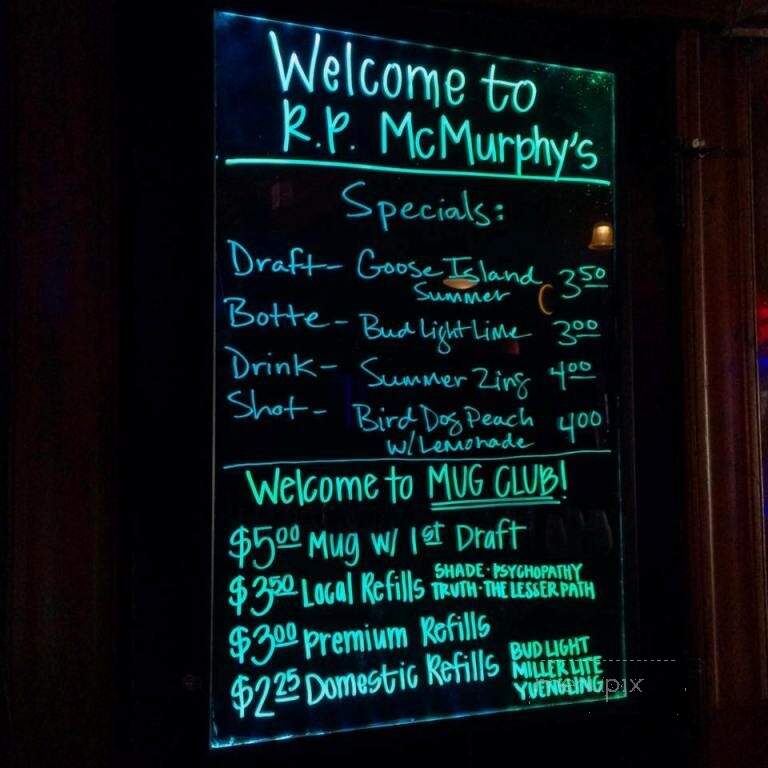 Welcome to
R.P. McMurphy's
Specials:
Draft- Goose Island 3 50
Summer
Botte- Bud Light Lime 3 00
Drink- Summer Zing 4 00
Shot- Bird Dog Peach 4 00
w/Lemonade
Welcome to MUG CLUB!
$5 00 Mug w/ 1st Draft
$3 50 Local Refills SHADE · PSYCHOPATHY
TRUTH · THE LESSER PATH
$3 00 Premium Refills
$2 25 Domestic Refills BUD LIGHT
MILLER LITE
YUENGLING